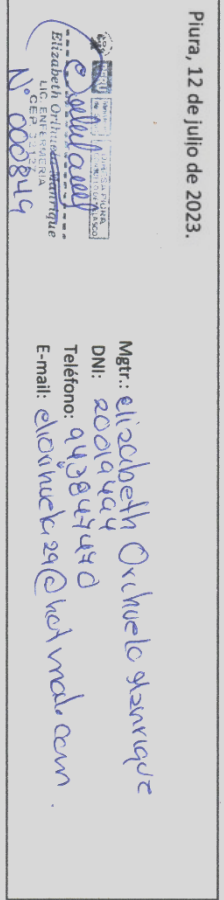 Piura, 12 de julio de 2023.
Mgtr.: elizabeth Orihuela Manrique
DNI: 20019494
Teléfono: 943847470
E-mail: eliorihuela29@hotmail.com.
Elizabeth Orihuela Manrique
LIC. ENFERMERIA
CEP
N° 000849